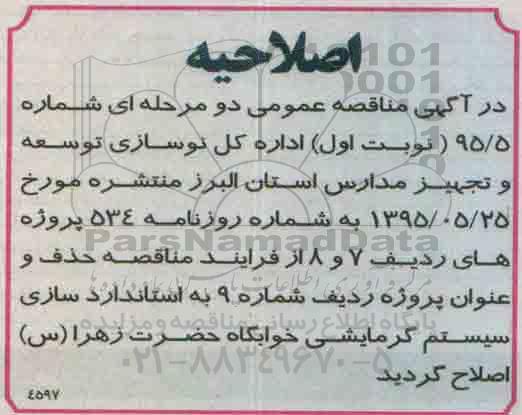 اصلاحیه
در آگهی مناقصه عمومی دو مرحله ای شماره
۹۵/۵ ( نوبت اول) اداره کل نوسازی توسعه
و تجهیز مدارس استان البرز منتشره مورخ
۱۳۹۵/۰۵/۲۵ به شماره روزنامه ۵۳۴ پروژه
های ردیف ۷ و ۸ از فرایند مناقصه حذف و
عنوان پروژه ردیف شماره ۹ به استاندارد سازی
سیستم گرمایشی خوابگاه حضرت زهرا (س)
اصلاح گردید
۴۵۹۷
ParsNamadData
پایگاه اطلاع رسانی مناقصه و مزایده
۰۲۱-۸۸۳۴۹۶۷۰-۵